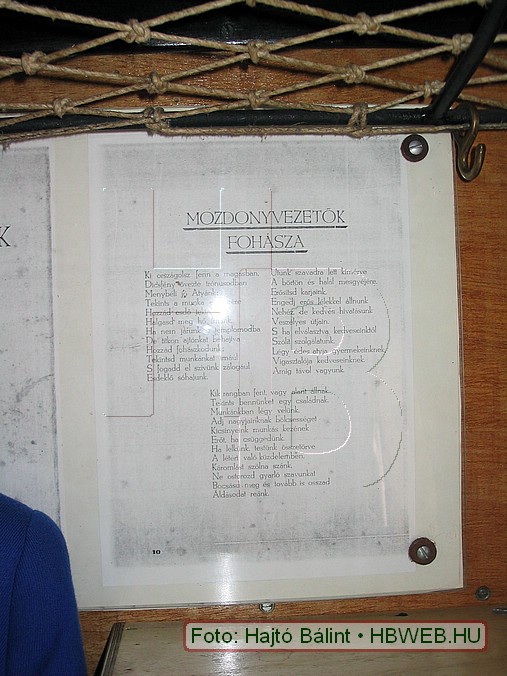 K
MOZDONYVEZETŐK
FOHÁSZA
Ki országolsz fenn a magasban
Dicsfény övezte trónusodban
Menybéli jó Atyánk
Tekints a munka
Hozzád esdő
Halgasd meg
Ha nem járunk templomodba
De titkon ajtónkat behajtva
Hozzád fohászkodunk.
Tekintsd munkánkat imául
S fogadd el szívünk zálogául
Esdeklő sóhajunk.
Utunk szavadra lett kimérve
A börtön és halál mesgyéjére.
Erősítsd karjaink.
Engedj erős lélekkel állnunk
Nehéz, de kedves hivatásunk
Veszélyes útjain.
S ha elválasztva kedveseinktől
Szólít szolgálatunk,
Légy édes atyja gyermekeinknek
Vigasztalója kedveseinknek.
Amíg távol vagyunk.
Kik rangban fent, vagy alant állnak
Tekints bennünket egy családnak.
Munkánkban légy velünk.
Adj nagyjainknak bölcsességet
Kicsinyeink munkás kezének
Erőt, ha csüggedünk.
Ha lelkünk, testünk összetörve
A létért való küzdelemben.
Káromlást szólna szánk,
Ne ostorozd gyarló szavunkat
Bocsásd meg és tovább is osszad
Áldásodat reánk.
10
Foto: Hajtó Bálint • HBWEB.HU